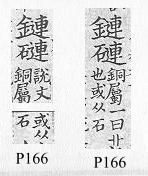 鏈
說文
銅屬
或从
石
P166
鏈
銅屬一曰
也或从石
P166